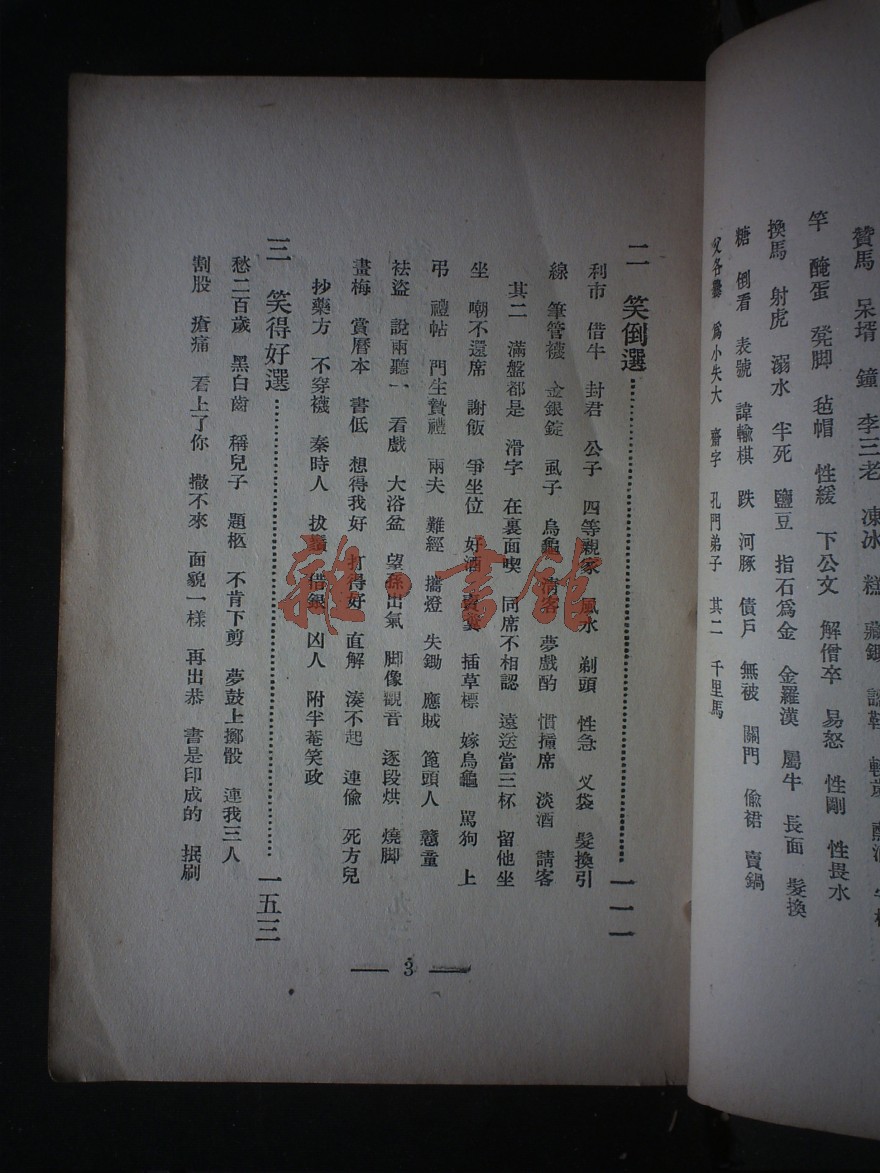 贊馬 呆壻 鐘 李三老 凍冰 糕 藏鋤
竿 醃蛋 凳脚 毡帽 性緩 下公文 解僧卒 易怒 性剛 性畏水
換馬 射虎 溺水 半死 鹽豆 指石爲金 金羅漢 屬牛 長面 髮換
糖 倒看 表號 諱輸棋 跌 河豚 債戶 無被 關門 偸裙 賣鍋
父各爨 爲小失大 齋字 孔門弟子 其二 千里馬
二 笑倒選 一一一
利市 借牛 封君 公子 四等親家 風水 剃頭 性急 叉袋 髮換引
線 筆管襪 金銀錠 虱子 烏龜 請客 夢戲酌 慣撞席 淡酒 請客
其二 滿盤都是 滑字 在裏面喫 同席不相認 遠送當三杯 留他坐
坐 嘲不還席 謝飯 爭坐位 好酒 賣宴 插草標 嫁烏龜 罵狗 上
弔 禮帖 門生贄禮 兩夫 難經 攜燈 失鋤 應賊 篦頭人 戇童
祛盜 說兩聽一 看戲 大浴盆 望孫出氣 脚像觀音 逐段烘 燒脚
畫梅 賞曆本 書低 想得我好 打得好 直解 湊不起 連偸 死方兒
抄藥方 不穿襪 秦時人 拔鬚 借銀 凶人 附半菴笑政
三 笑得好選 一五三
愁二百歲 黑白齒 稱兒子 題柩 不肯下剪 夢鼓上擲骰 連我三人
割股 瘡痛 看上了你 撒不來 面貌一樣 再出恭 書是印成的 抿刷
3
雜·書館